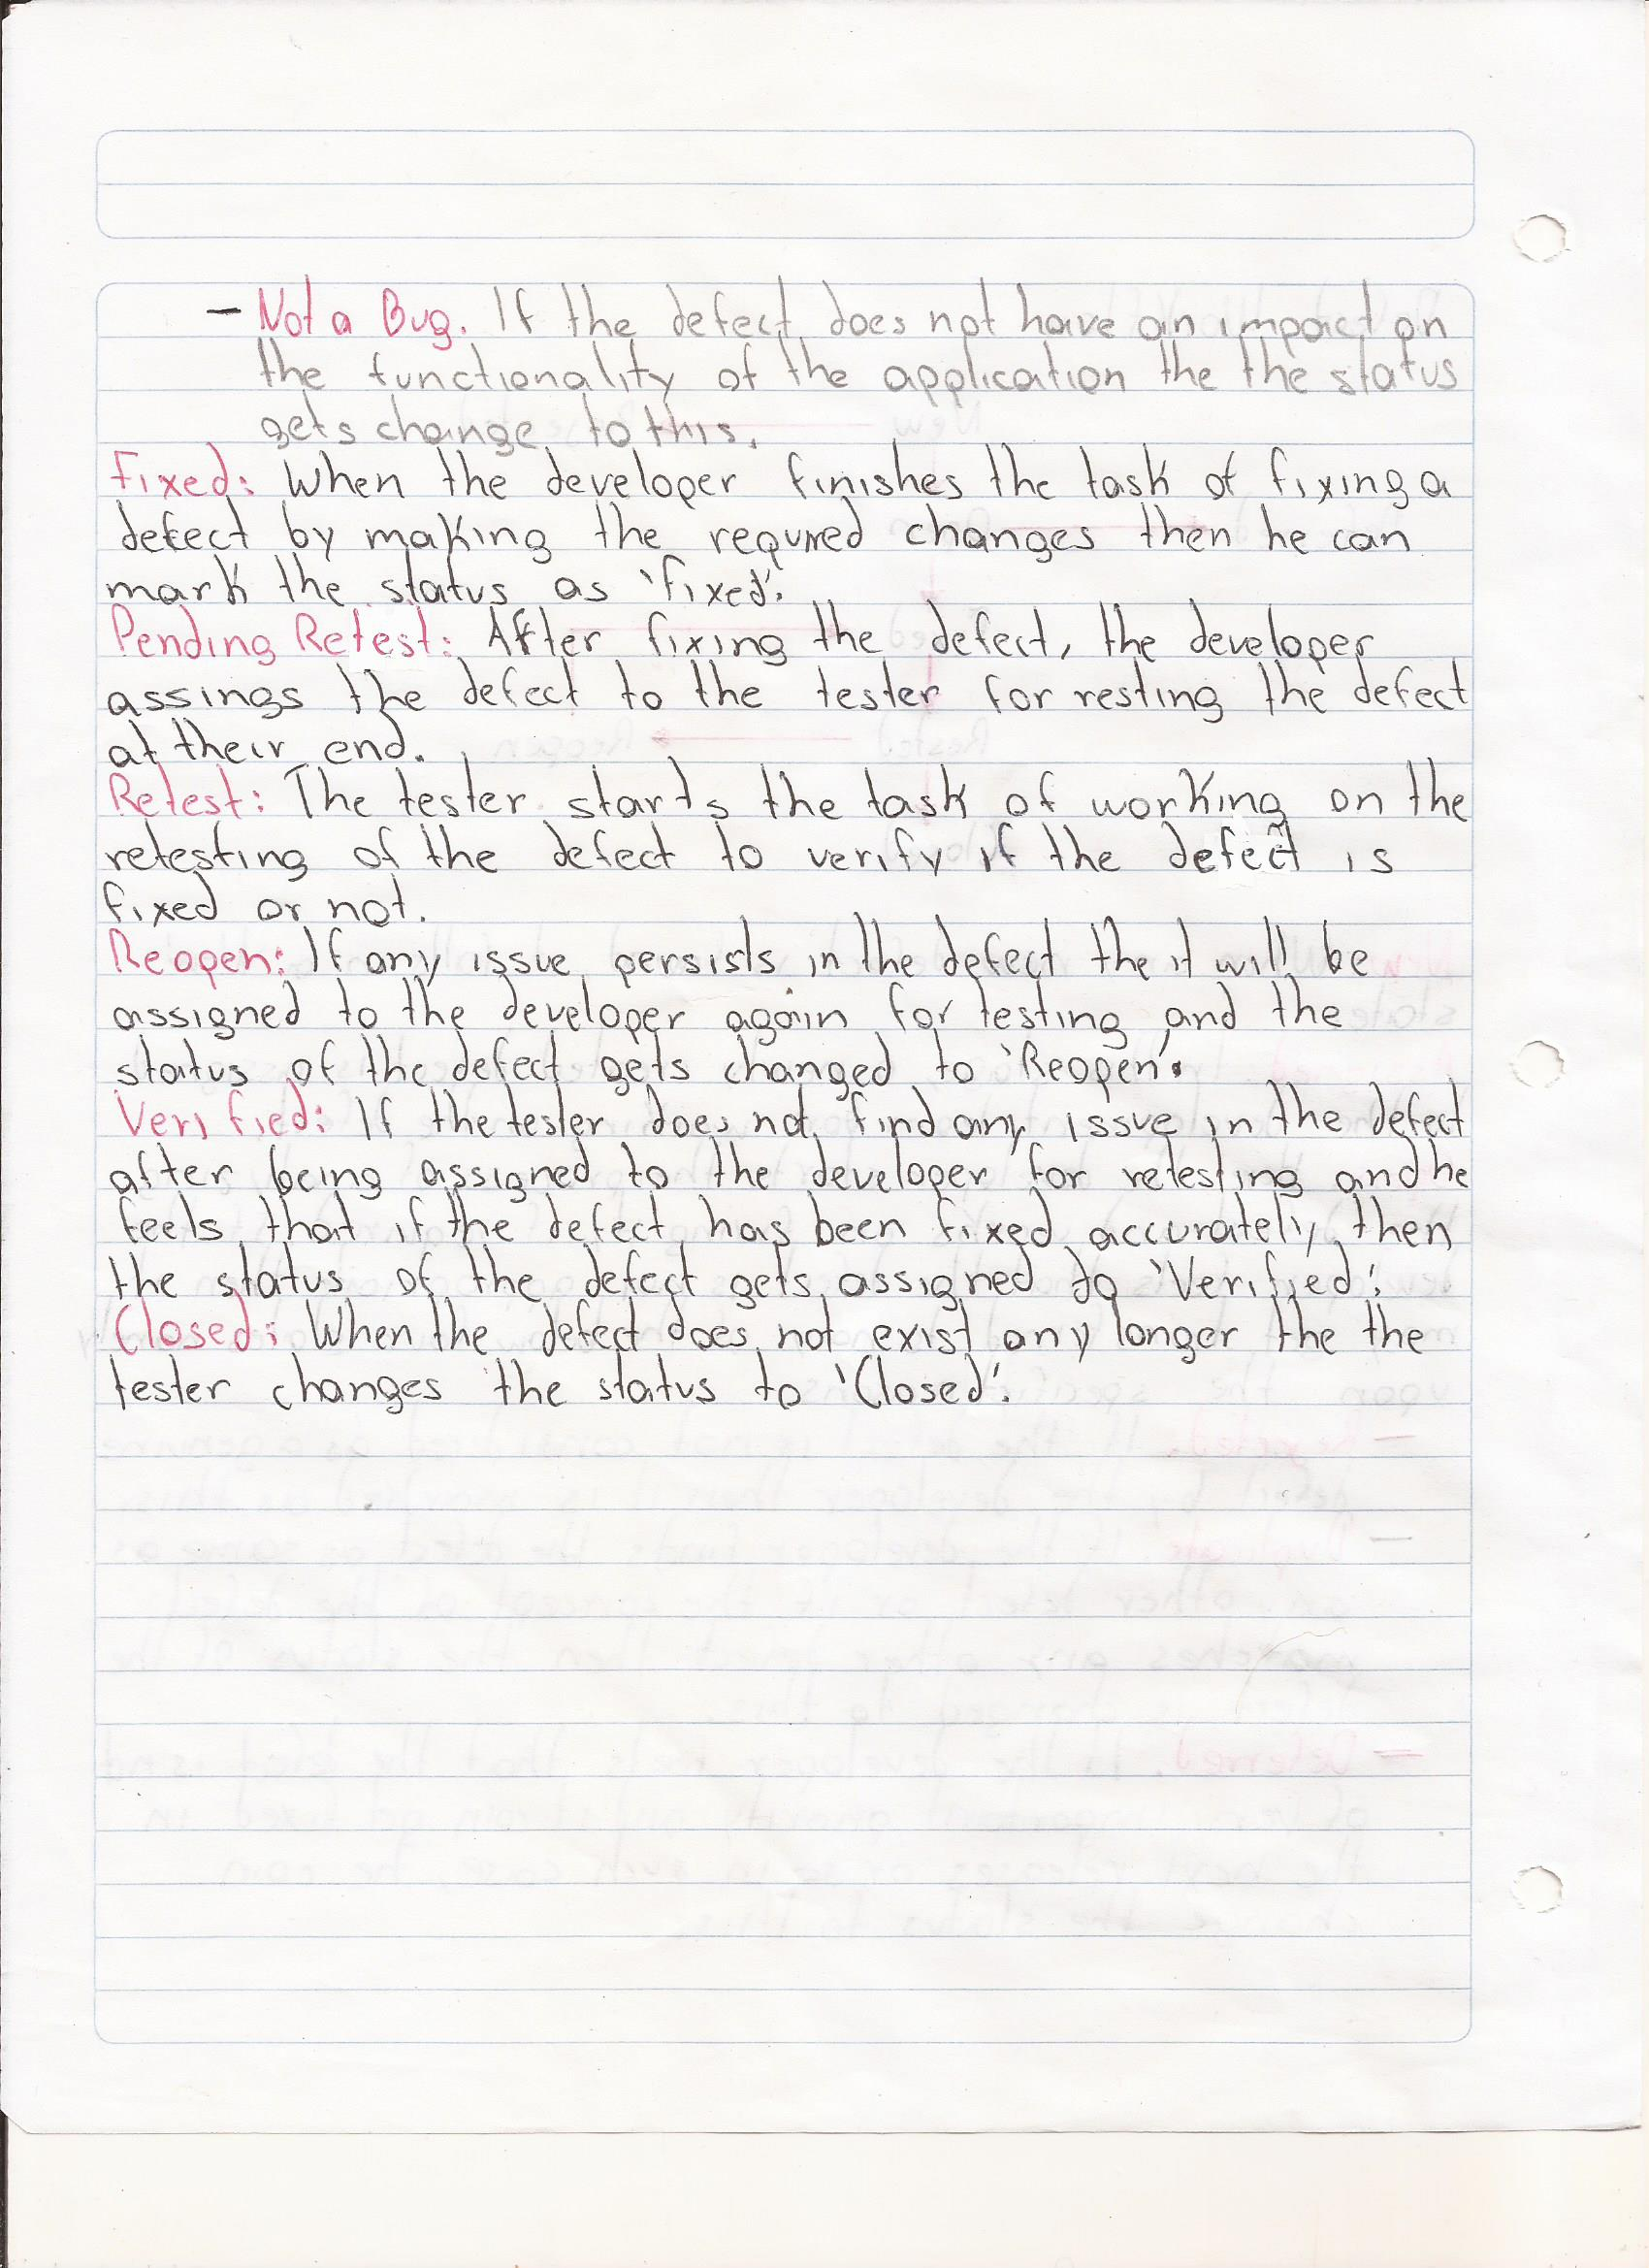 – Not a Bug. If the defect does not have an impact on
the functionality of the application the the status
gets change to this.
Fixed: When the developer finishes the task of fixing a
defect by making the required changes then he can
mark the status as 'fixed'.
Pending Retest: After fixing the defect, the developer
assings the defect to the tester for resting the defect
at their end.
Retest: The tester starts the task of working on the
retesting of the defect to verify if the defect is
fixed or not.
Reopen: If any issue persists in the defect the it will be
assigned to the developer again for testing and the
status of the defect gets changed to 'Reopen'.
Verified: If the tester does not find any issue in the defect
after being assigned to the developer for retesting and he
feels that if the defect has been fixed accurately then
the status of the defect gets assigned to 'Verified'.
Closed: When the defect does not exist any longer the the
tester changes the status to 'Closed'.